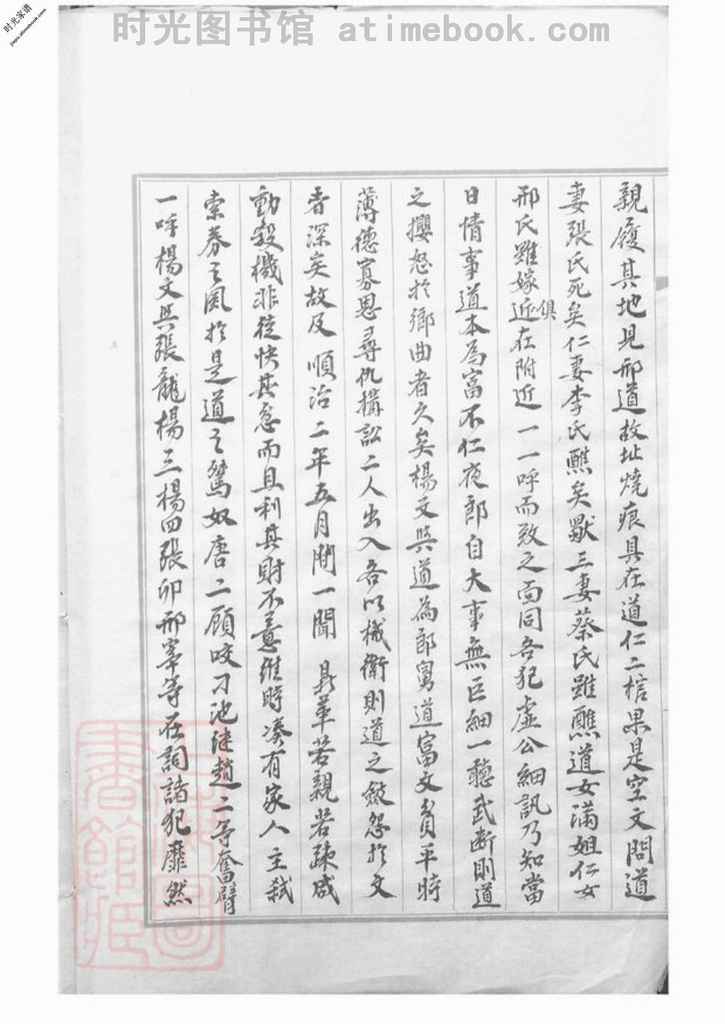 时光图书馆 atimebook.com
时光家谱
親履其地見邢道故址燒痕具在道仁二棺果是空文問道
妻張氏死矣仁妻李氏醮矣獸三妻蔡氏雖醮道女滿姐仁女
邢氏雖嫁俱近在附近一一呼而致之面同各犯虛公細訊乃知當
日情事道本為富不仁夜郎自大事無巨細一聽武斷則道
之攖怒於鄉曲者久矣楊文與道為郎舅道富文貧平時
薄德寡恩尋仇搆訟二人出入各以械衛則道之斂怨於文
者深矣故及 順治二年五月間一聞 鼎革若親若疎咸
動殺機非徒快其忿而且利其財不意維時湊有家人主弒
索券之風於是道之鴛奴唐二顧咬刀池陡趙二等奮臂
一呼楊文與張龍楊三楊四張卯邢宰等在詞諸犯靡然